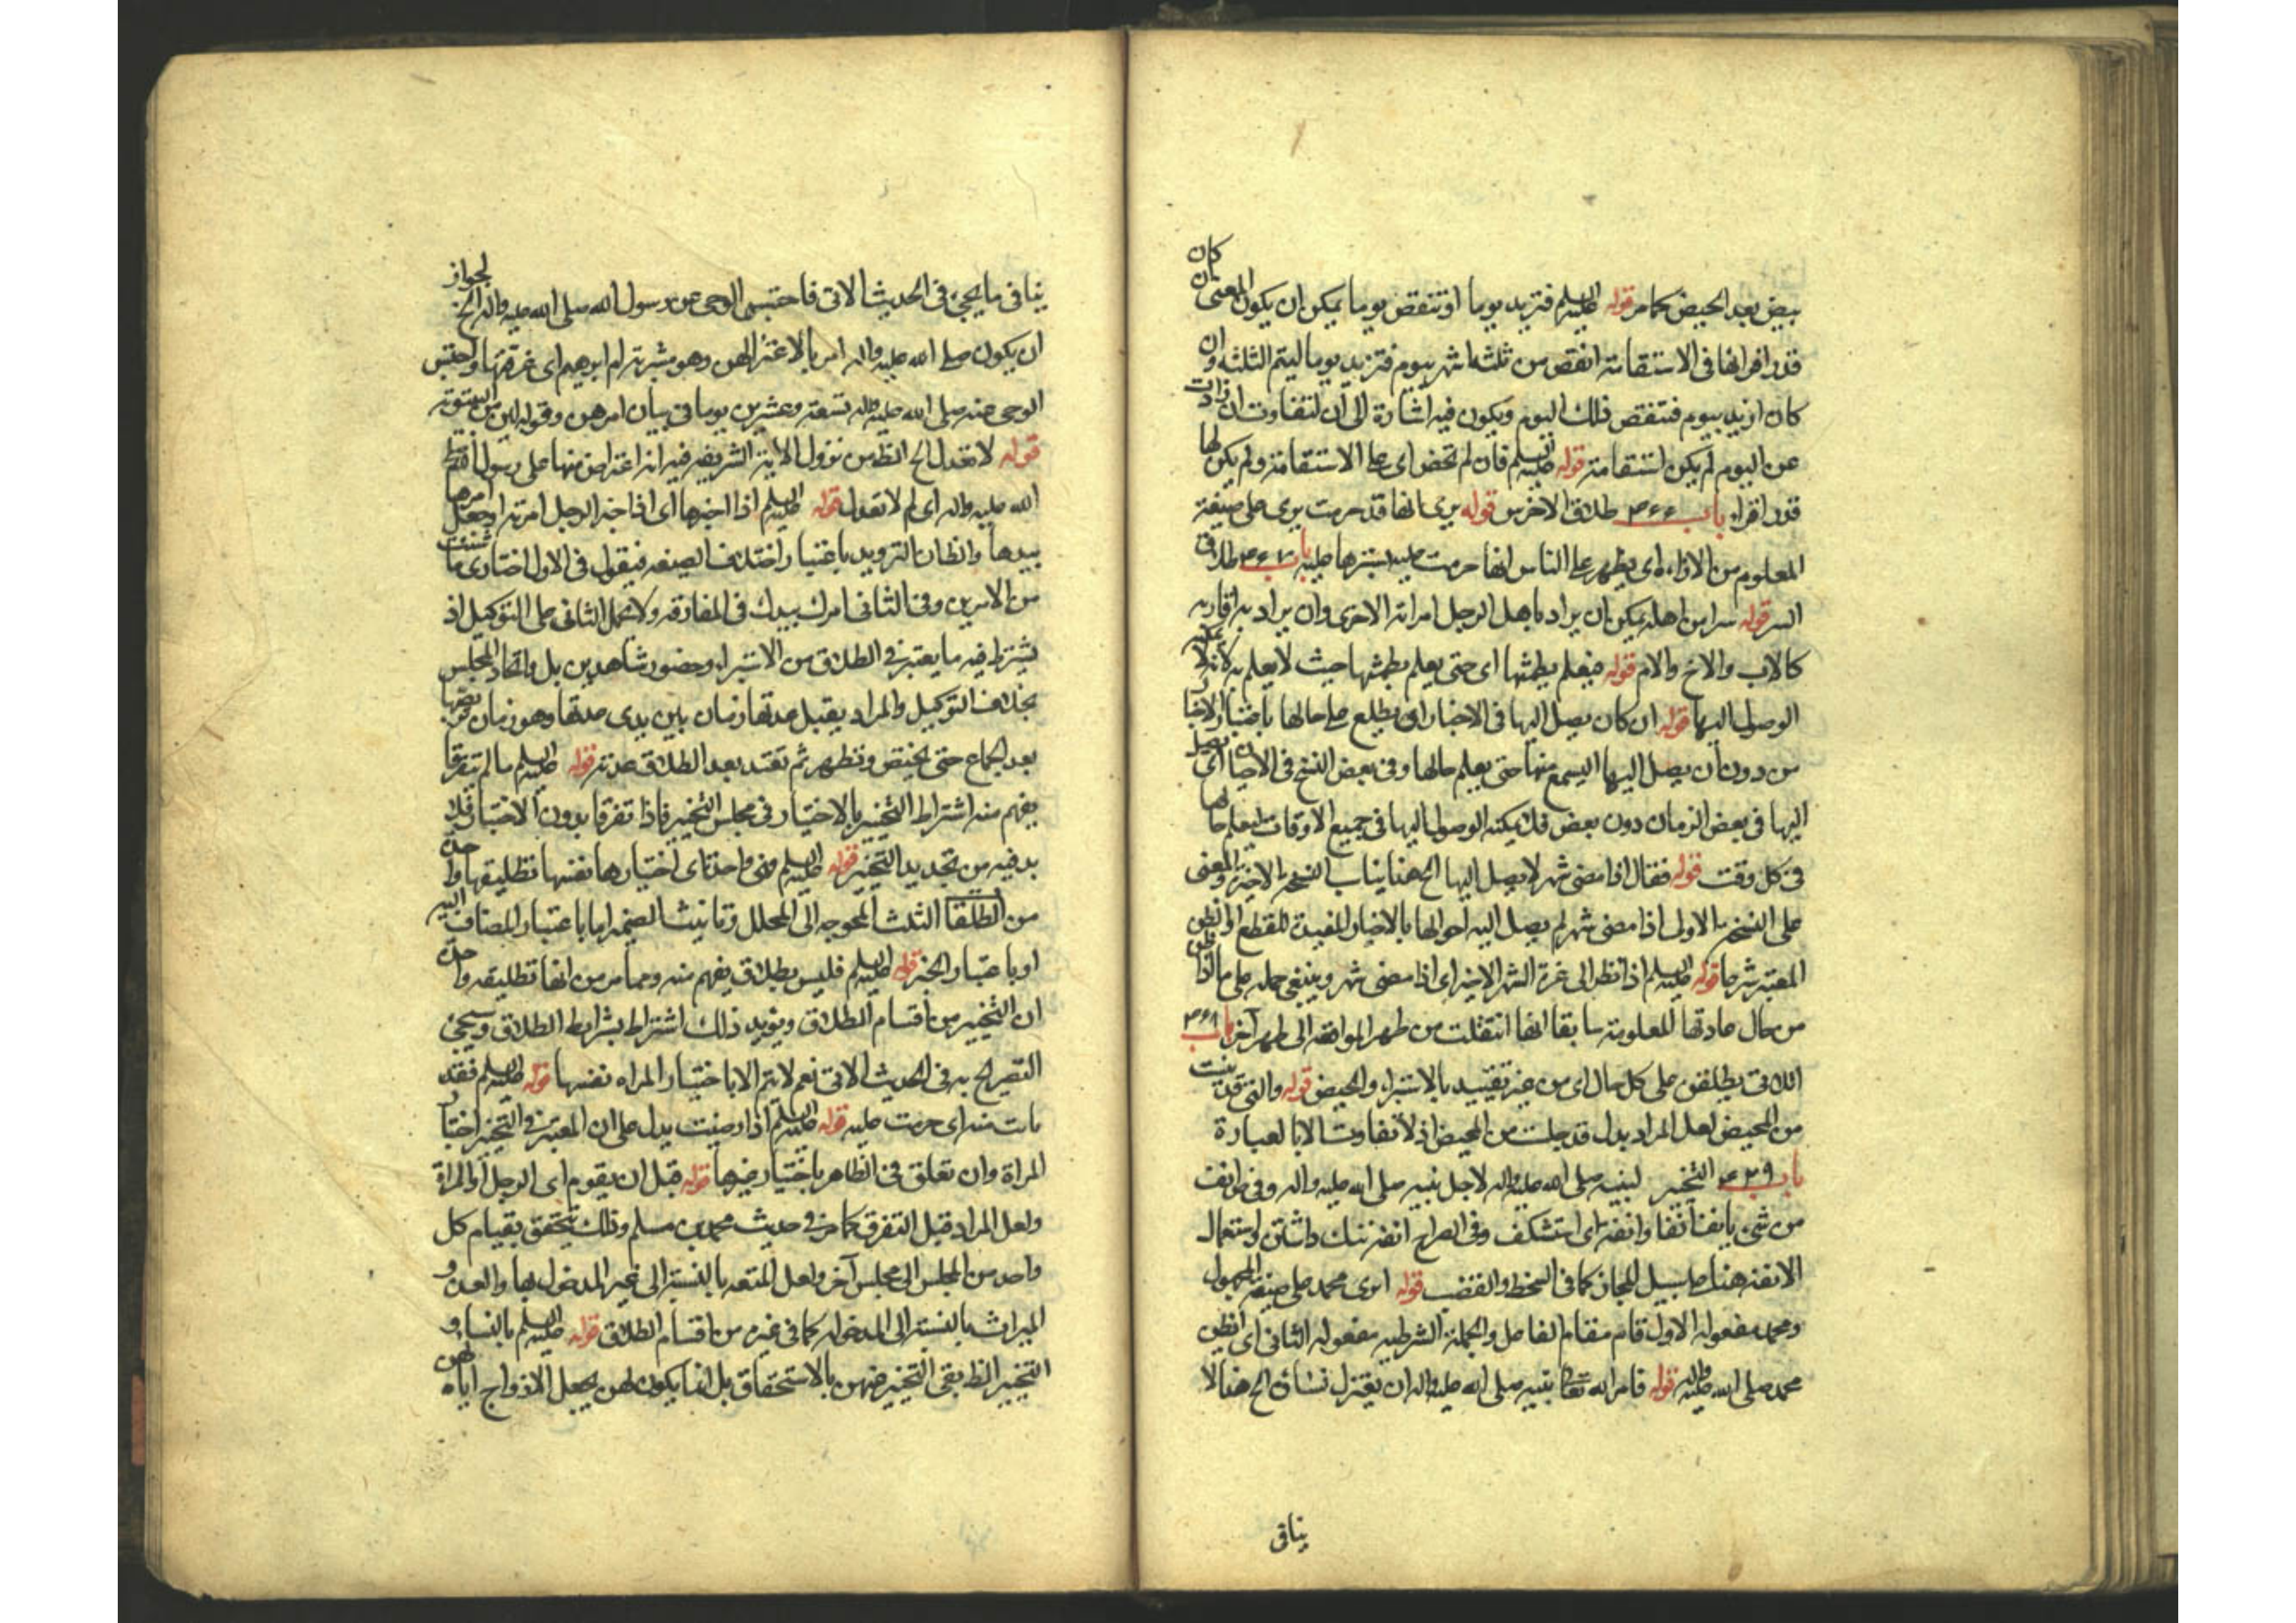 بيض بعد الحيض كما مر قوله عليه السلم فتزيد يوما او تنقص يوما يمكن ان يكون المعنى ان كان
قدر اقرائها في الاستقامة انقص من ثلثة اشهر بيوم فتزيد يوما ليتم الثلثه وان
كان ازيد بيوم فتنقص ذلك اليوم ويكون فيه اشارة الى ان التفاوت ان زاد
عن اليوم لم يكن استقامة قوله عليه السلم فان لم تحض اى على الاستقامة ولم يكن لها
قدر اقراء باب ٣٦٦ طلاق الاخرس قوله يرى انها قد حرمت يرى على صيغة
المعلوم من الاراءه اى يظهر على الناس انها حرمت عليه بسترها عليه باب ٣٦٧ طلاق
السر قوله سرا من اهله يمكن ان يراد باهل الرجل امراته الاخرى وان يراد به اقاربه
كالاب والاخ والام قوله فيعلم بطمثها اى حتى يعلم بطمثها حيث لا يعلم به
الوصول اليها قوله ان كان يصل اليها في الاحيان اى يطلع على حالها باخبار الاخبار
من دون ان يصل اليها اليسمع منها حتى يعلم حالها وفي بعض النسخ في الاحيان اى يصل
اليها في بعض الزمان دون بعض فلا يمكنه الوصول اليها في جميع الاوقات ليعلم حالها
في كل وقت قوله فقال اذا مضى شهر لا يصل اليها الخ هذا يناسب النسخه الاخيره والمعنى
على النسخه الاولى اذا مضى شهر لم يصل اليه احوالها بالاخبار المفيدة للقطع او الظن
المعتبر شرعا قوله عليه السلم اذا نظر الى غرة الشهر الاخيره اى اذا مضى شهر وينبغي حمله على ما اذا ظن
من حال عادتها المعلومة سابقا انها انتقلت من طهر المواقعه الى طهر آخر باب ٣٦٨
اللاتي يطلقن على كل حال اى من غير تقييد بالاستبراء والحيض قوله والتي قد يئست
من المحيض لعل المراد بدل قد جلست من المحيض اذ لا تفاوت الا بالعبارة
باب ٣٦٩ التخيير لنبيه صلى الله عليه واله لاجل نبيه صلى الله عليه واله وفي ق انف
من شيء يانف انفا وانفة اى استنكف وفي الصراح انفة ننك داشتن واستعمال
الانفة هنا على سبيل المجاز كما في السخط والغضب قوله ايرى محمد على صيغة المجهول
ومحمد مفعوله الاول قام مقام الفاعل والجملة الشرطيه مفعوله الثاني اى ايظن
محمد صلى الله عليه واله قوله فامر الله تعالى نبيه صلى الله عليه واله ان يعتزل نساءه الخ هذا لا
ينافي
ينافي ما يجيء في الحديث الاتي فاحتبس الوحى عن رسول الله صلى الله عليه واله الخ لجواز
ان يكون صلى الله عليه واله امر بالاعتزال لهن وهو مشربة ام ابرهيم اى غرفتها واحتبس
الوحى عنه صلى الله عليه واله تسعة وعشرين يوما في بيان امرهن وقوله
قوله لا تعدل الخ الظ من نزول الاية الشريفه فيه انه اعتراض منها على رسول
الله صلى الله عليه واله اى لم لا تعدل قوله عليه السلم اذا خيرها اى اذا خير الرجل امرته او جعل امرها
بيدها والظ ان الترديد باعتبار اختلاف الصيغه فيقول في الاول اختارى ما شئت
من الامرين وفي الثاني امرك بيدك في المفارقه ولا يحمل الثاني على التوكيل اذ
يشترط فيه ما يعتبر في الطلاق من الاستبراء وحضور شاهدين بل واتحاد المجلس
بخلاف التوكيل والمراد بقبل عدتها زمان بين يدى عدتها وهو زمان
بعد الجماع حتى تحيض وتطهر ثم تعتد بعد الطلاق عدته قوله عليه السلم ما لم يتفرقا
يفهم منه اشتراط التخيير بالاختيار في مجلس التخيير فاذا تفرقا بدون الاختيار فلا
بد فيه من تجديد التخيير قوله عليه السلم فهى واحدة اى اختيارها نفسها تطليقة واحدة
من الطلقات الثلث المحوجه الى المحلل وتانيث الضمير اما باعتبار المضاف اليه
او باعتبار الخبر قوله عليه السلم فليس بطلاق يفهم منه ومما مر من انها تطليقه واحدة
ان التخيير من اقسام الطلاق ويؤيد ذلك اشتراط بشرايط الطلاق وسيجئ
التصريح به في الحديث الاتي نعم لا يتم الا باختيار المراه نفسها قوله عليه السلم فقد
بانت منه اى حرمت عليه قوله عليه السلم اذا رضيت يدل على ان المعتبر في التخيير اختيار
المراة وان تعلق في الظاهر باختيار غيرها قوله قبل ان يقوم اى الرجل او المراة
ولعل المراد قبل التفرق كما مر في حديث محمد بن مسلم وذلك يتحقق بقيام كل
واحد من المجلس الى مجلس آخر ولعل المتعه بالنسبة الى غير المدخول بها والعدة و
الميراث بالنسبة الى المدخوله كما في غيره من اقسام الطلاق قوله عليه السلم ما للنساء و
التخيير الظ نفى التخيير عنهن بالاستحقاق بل انما يكون لهن بجعل الازواج اياه لهن